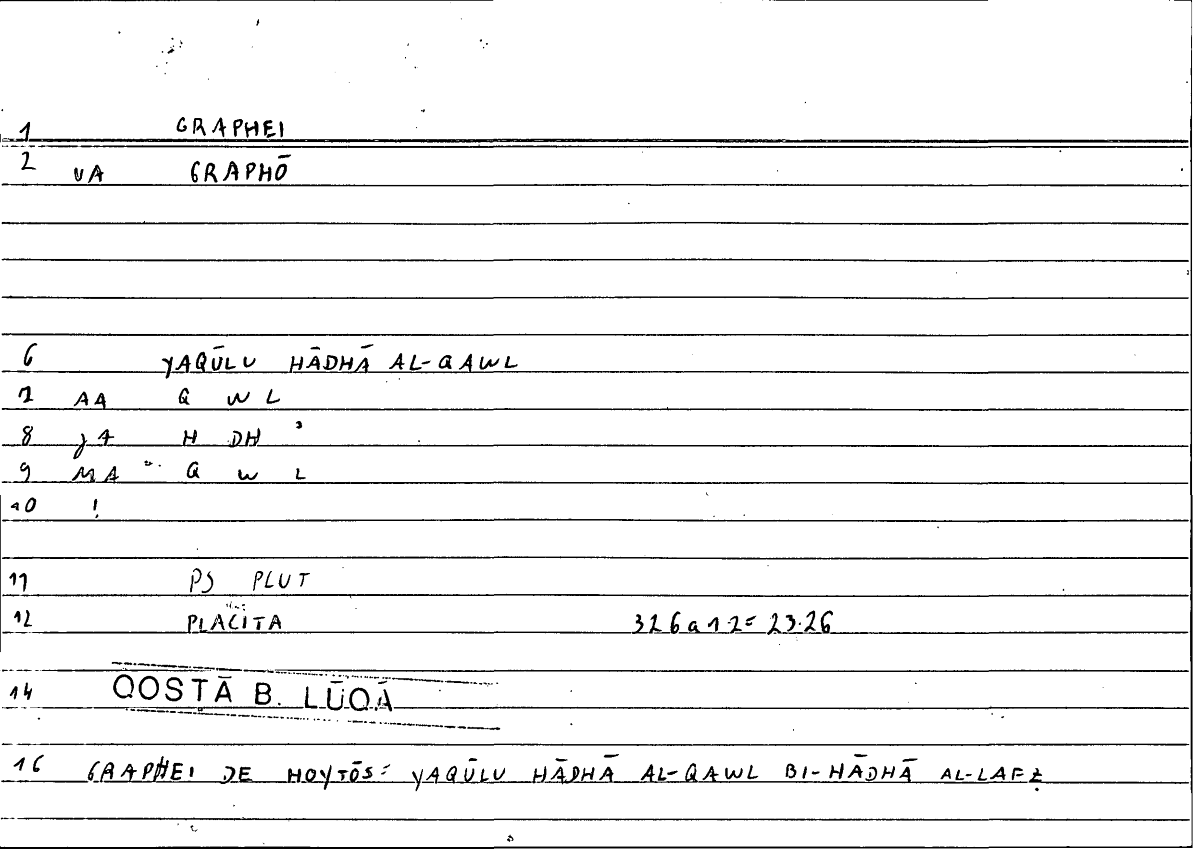 1 GRAPHEI
2 VA GRAPHŌ
6 YAQŪLU HĀDHĀ AL-QAWL
7 AA Q W L
8 JA H DH ʾ
9 MA Q W L
10 !
11 PS PLUT
12 PLACITA 326a12= 23.26
14 QOSṬĀ B. LŪQĀ
16 GRAPHEI DE HOYTŌS: YAQŪLU HĀDHĀ AL-QAWL BI-HĀDHĀ AL-LAFẒ